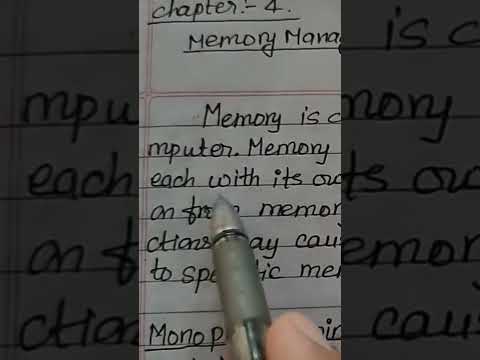 chapter:- 4.
Memory Manag
Memory is c
mputer. Memory
each with its ow
on from memor
ctions may cau
to specific mem
Monop